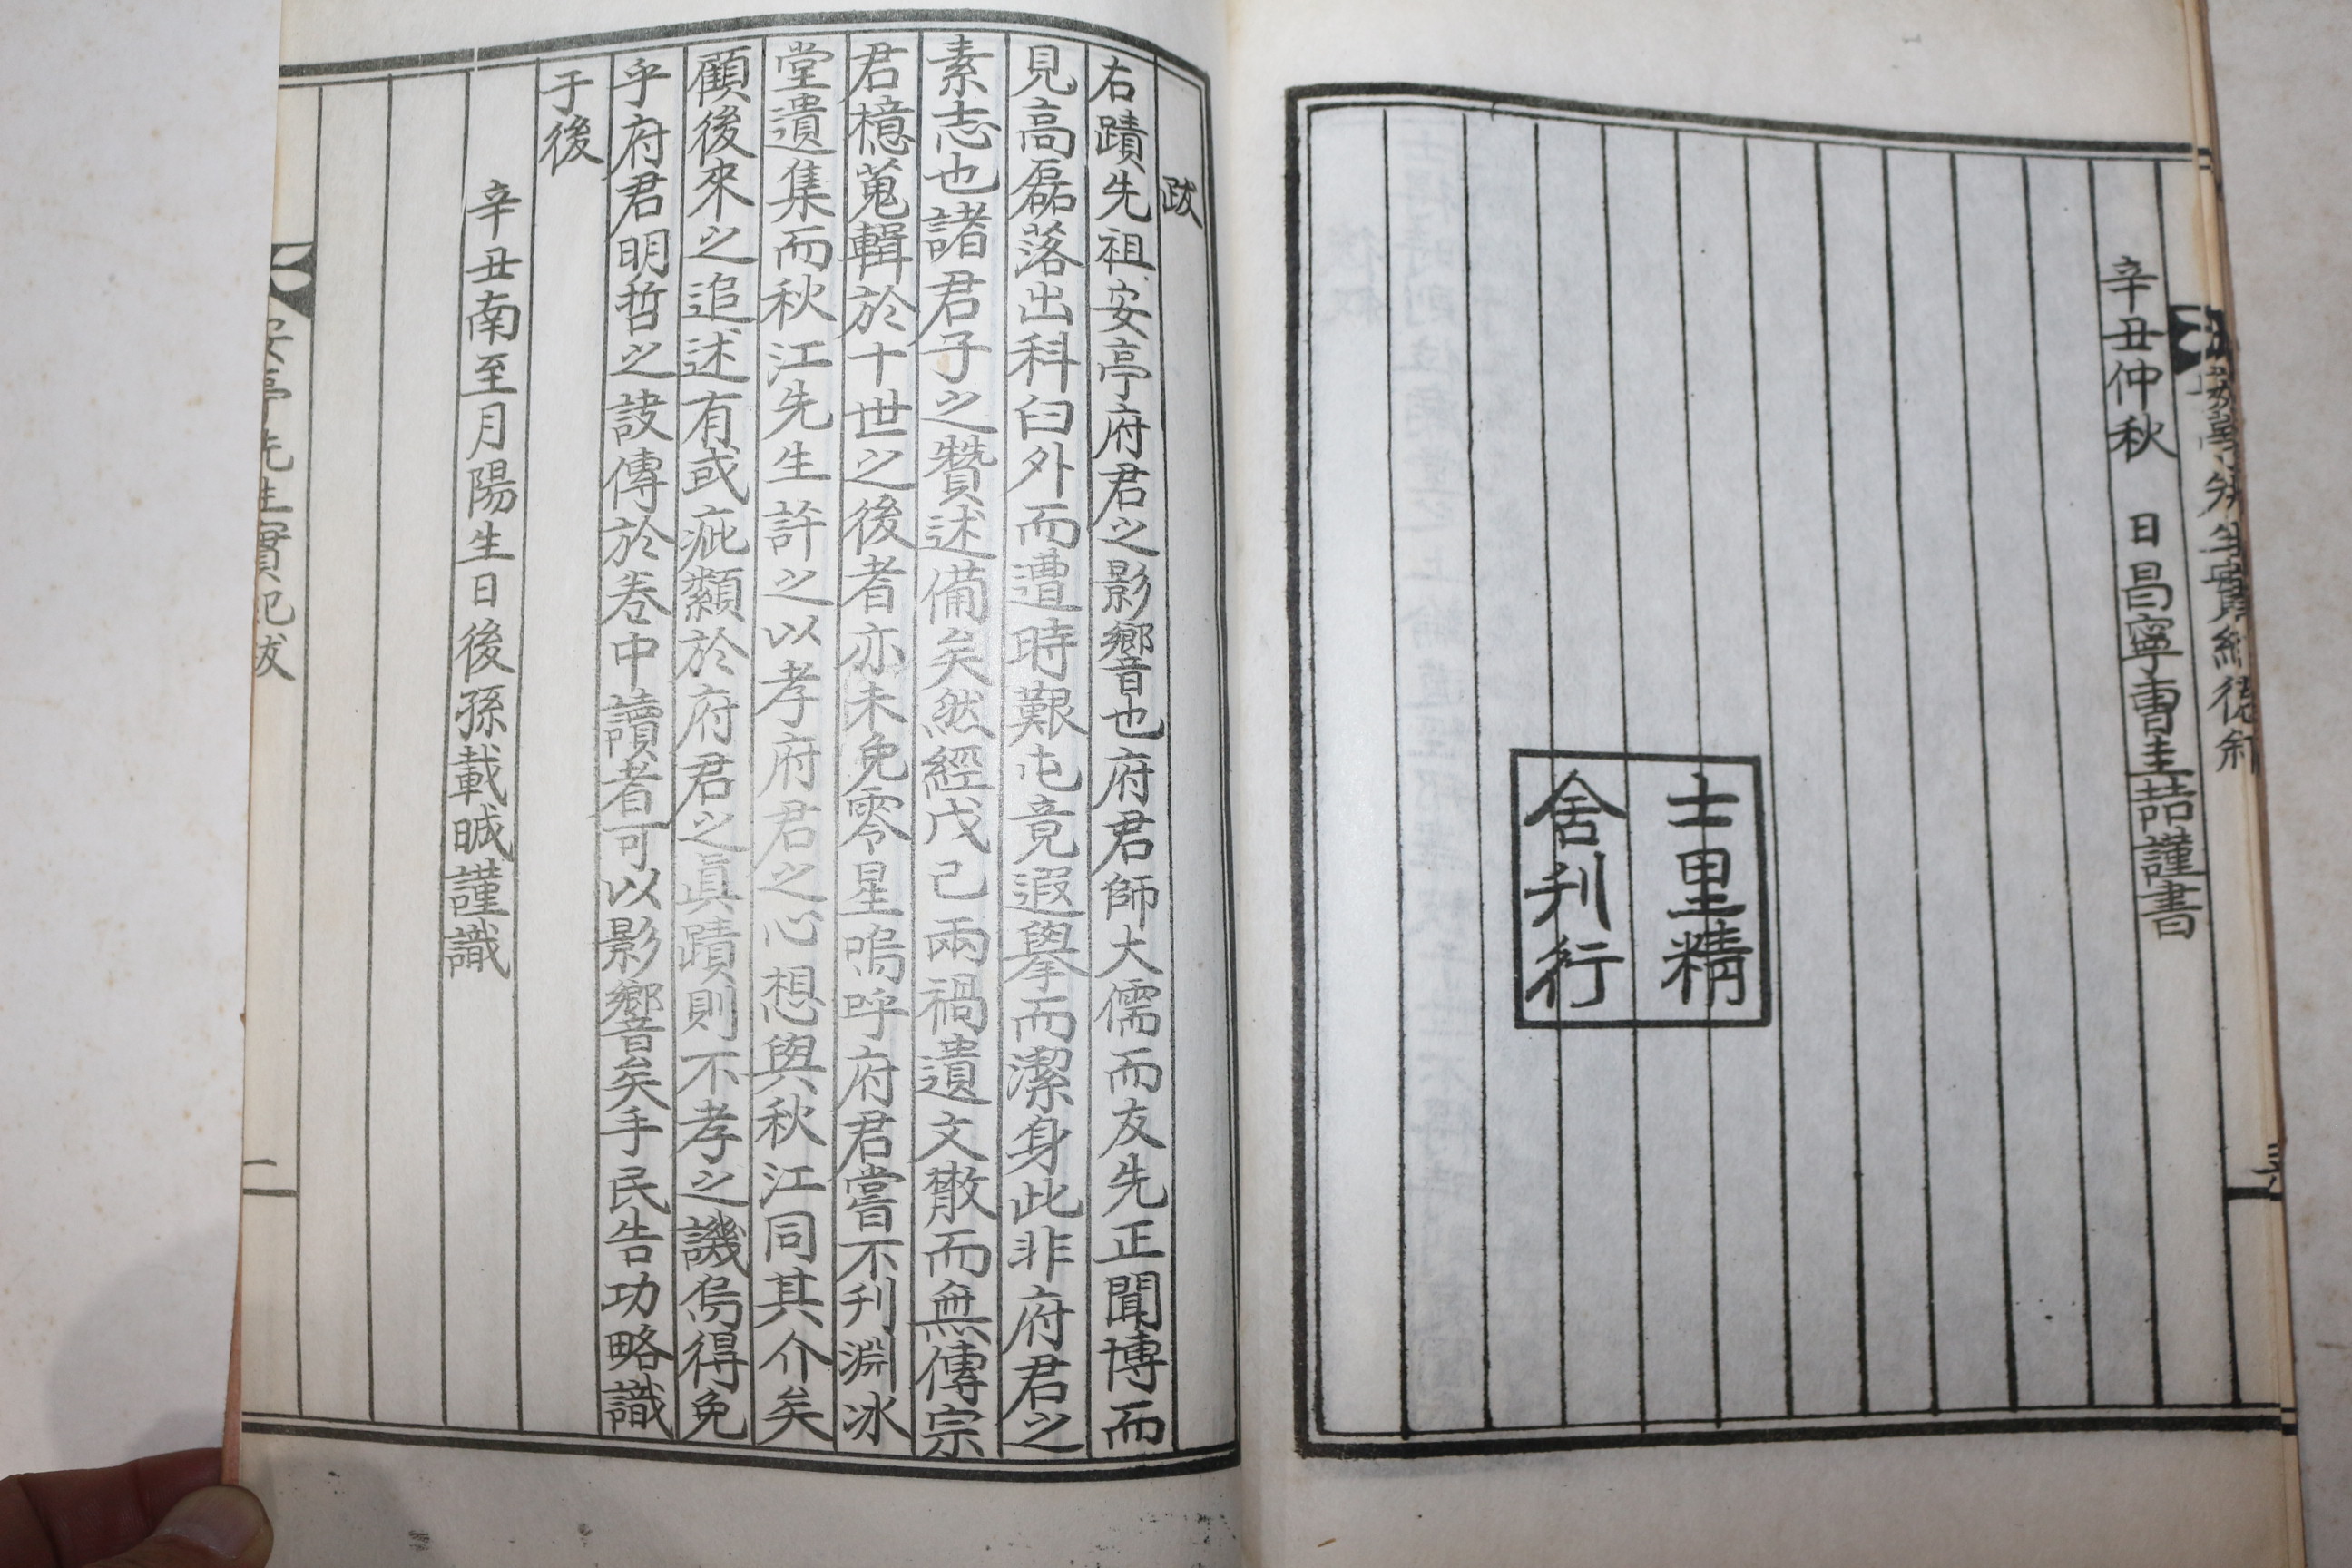 辛丑仲秋 日昌寧曺圭喆謹書
士里精
舍刋行
跋
右蹟先祖安亭府君之影響也府君師大儒而友先正聞博而
見高磊落出科臼外而遭時艱屯竟遐擧而潔身此非府君之
素志也諸君子之贊述備矣然經戊己兩禍遺文散而無傳宗
君檍蒐輯於十世之後者亦未免零星嗚呼府君嘗不刋淵冰
堂遺集而秋江先生許之以孝府君之心想與秋江同其介矣
顧後來之追述有或疵纇於府君之眞蹟則不孝之譏烏得免
乎府君明哲之謏傳於卷中讀者可以影響矣手民告功略識
于後
辛丑南至月陽生日後孫載㦿謹識
安亭先生實紀跋
二